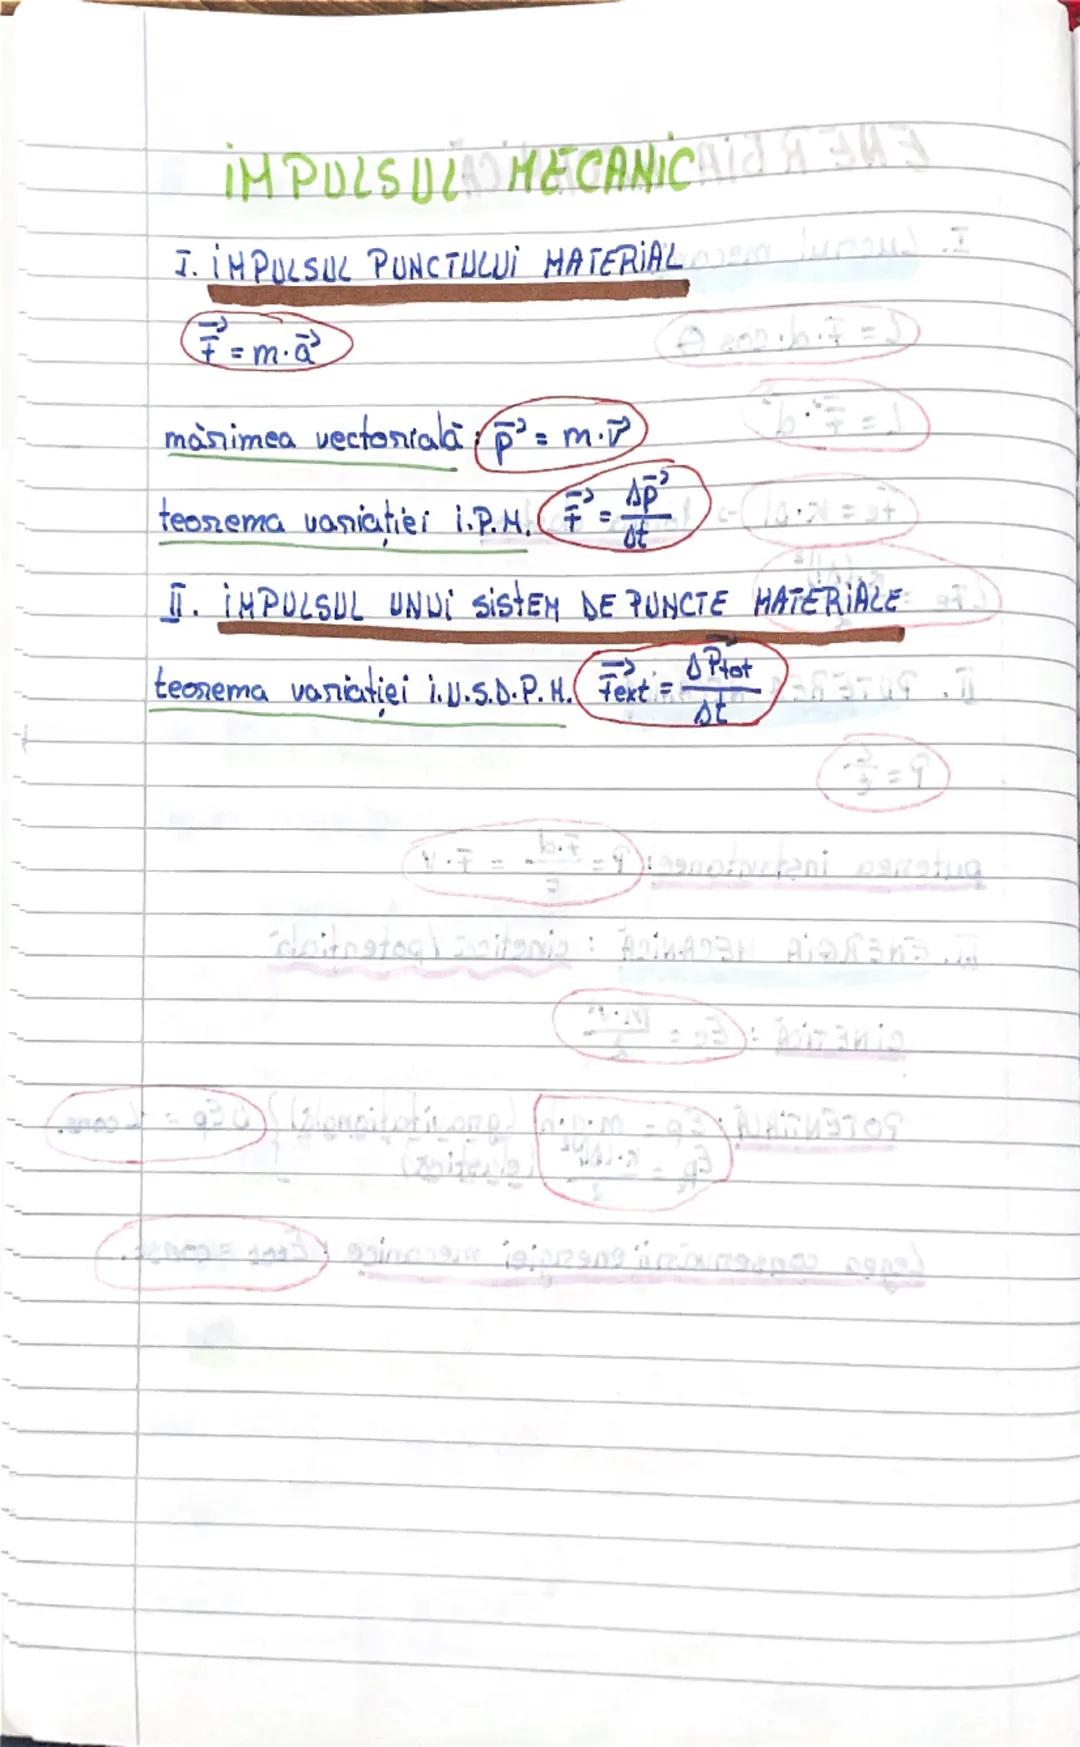 IMPULSUL MECANIC
I. IMPULSUL PUNCTULUI MATERIAL
F⃗ = m·a⃗
mărimea vectorială: p⃗ = m·v⃗
teorema variației i.P.M. F⃗ = Δp⃗/Δt
II. IMPULSUL UNUI SISTEM DE PUNCTE MATERIALE
teorema variației i.U.S.D.P.M. F⃗ext = ΔP⃗tot/Δt